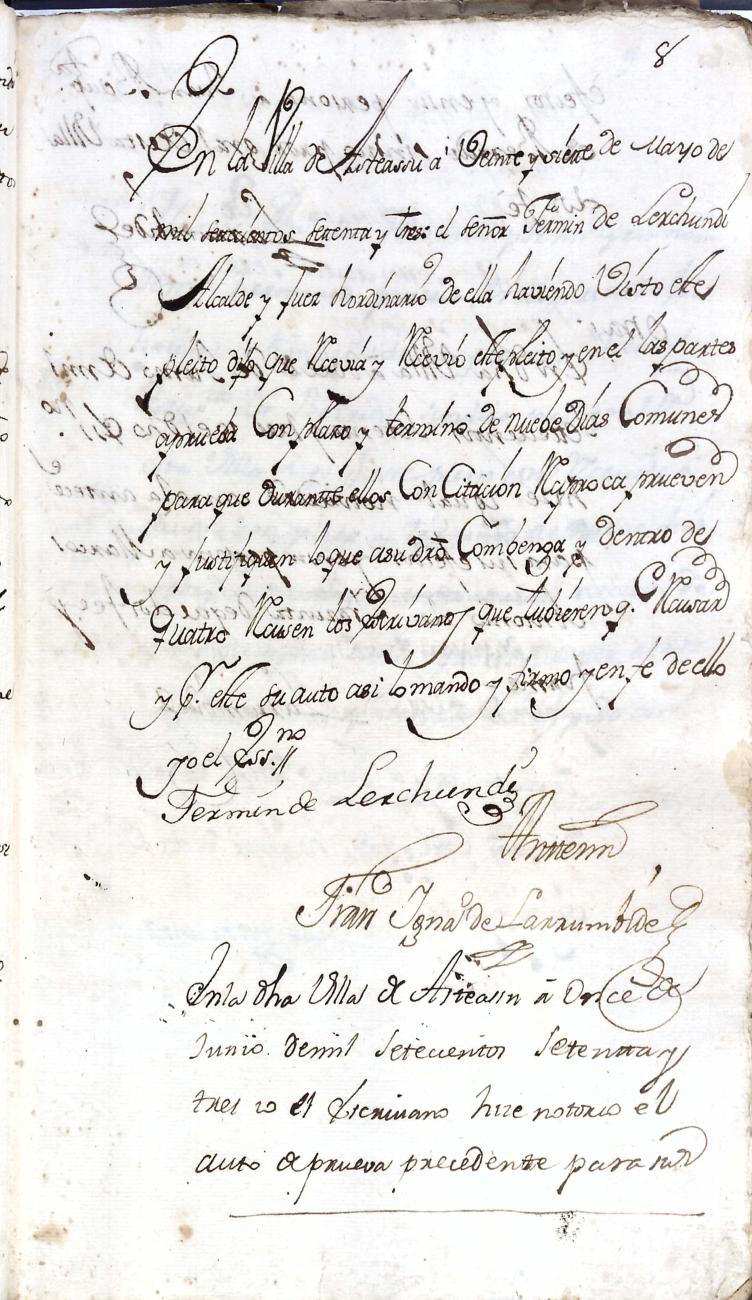 8
En la Villa de Asteassu a Veinte y siete de Mayo de
mil setecientos setenta y tres: el señor Fermin de Lerchundi
Alcalde y Juez hordinario de ella haviendo Visto este
pleito dijo que Recivia y Recivio este pleito y en el las partes
aprueba Con plazo y termino de nuebe dias Comunes
para que durante ellos Con Citacion Reziproca prueven
y Justifiquen lo que a su dro Combenga y dentro de
quatro Recusen los Escrivanos que tubieren q. Recusar
y p.r este su auto asi lo mando y firmo y en fe de ello
yo el Ess.no
Fermin de Lerchundi
Antemi
Fran Igna.o de Larrumbide
En la dha Villa de Asteasu à Once de
Junio de mil setecientos setenta y
tres io el Escrivano hize notorio el
auto de prueva precedente para su